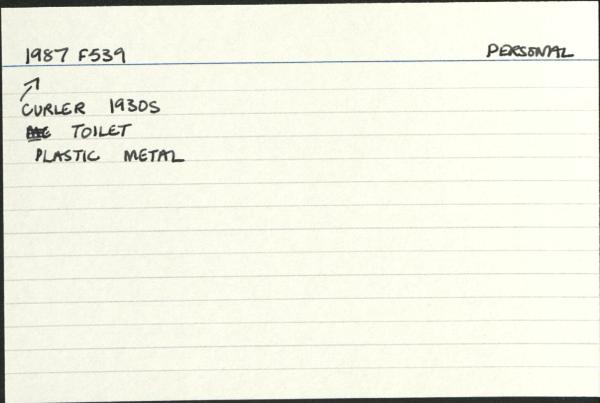 1987 F539 PERSONAL
CURLER 1930S
TOILET
PLASTIC METAL